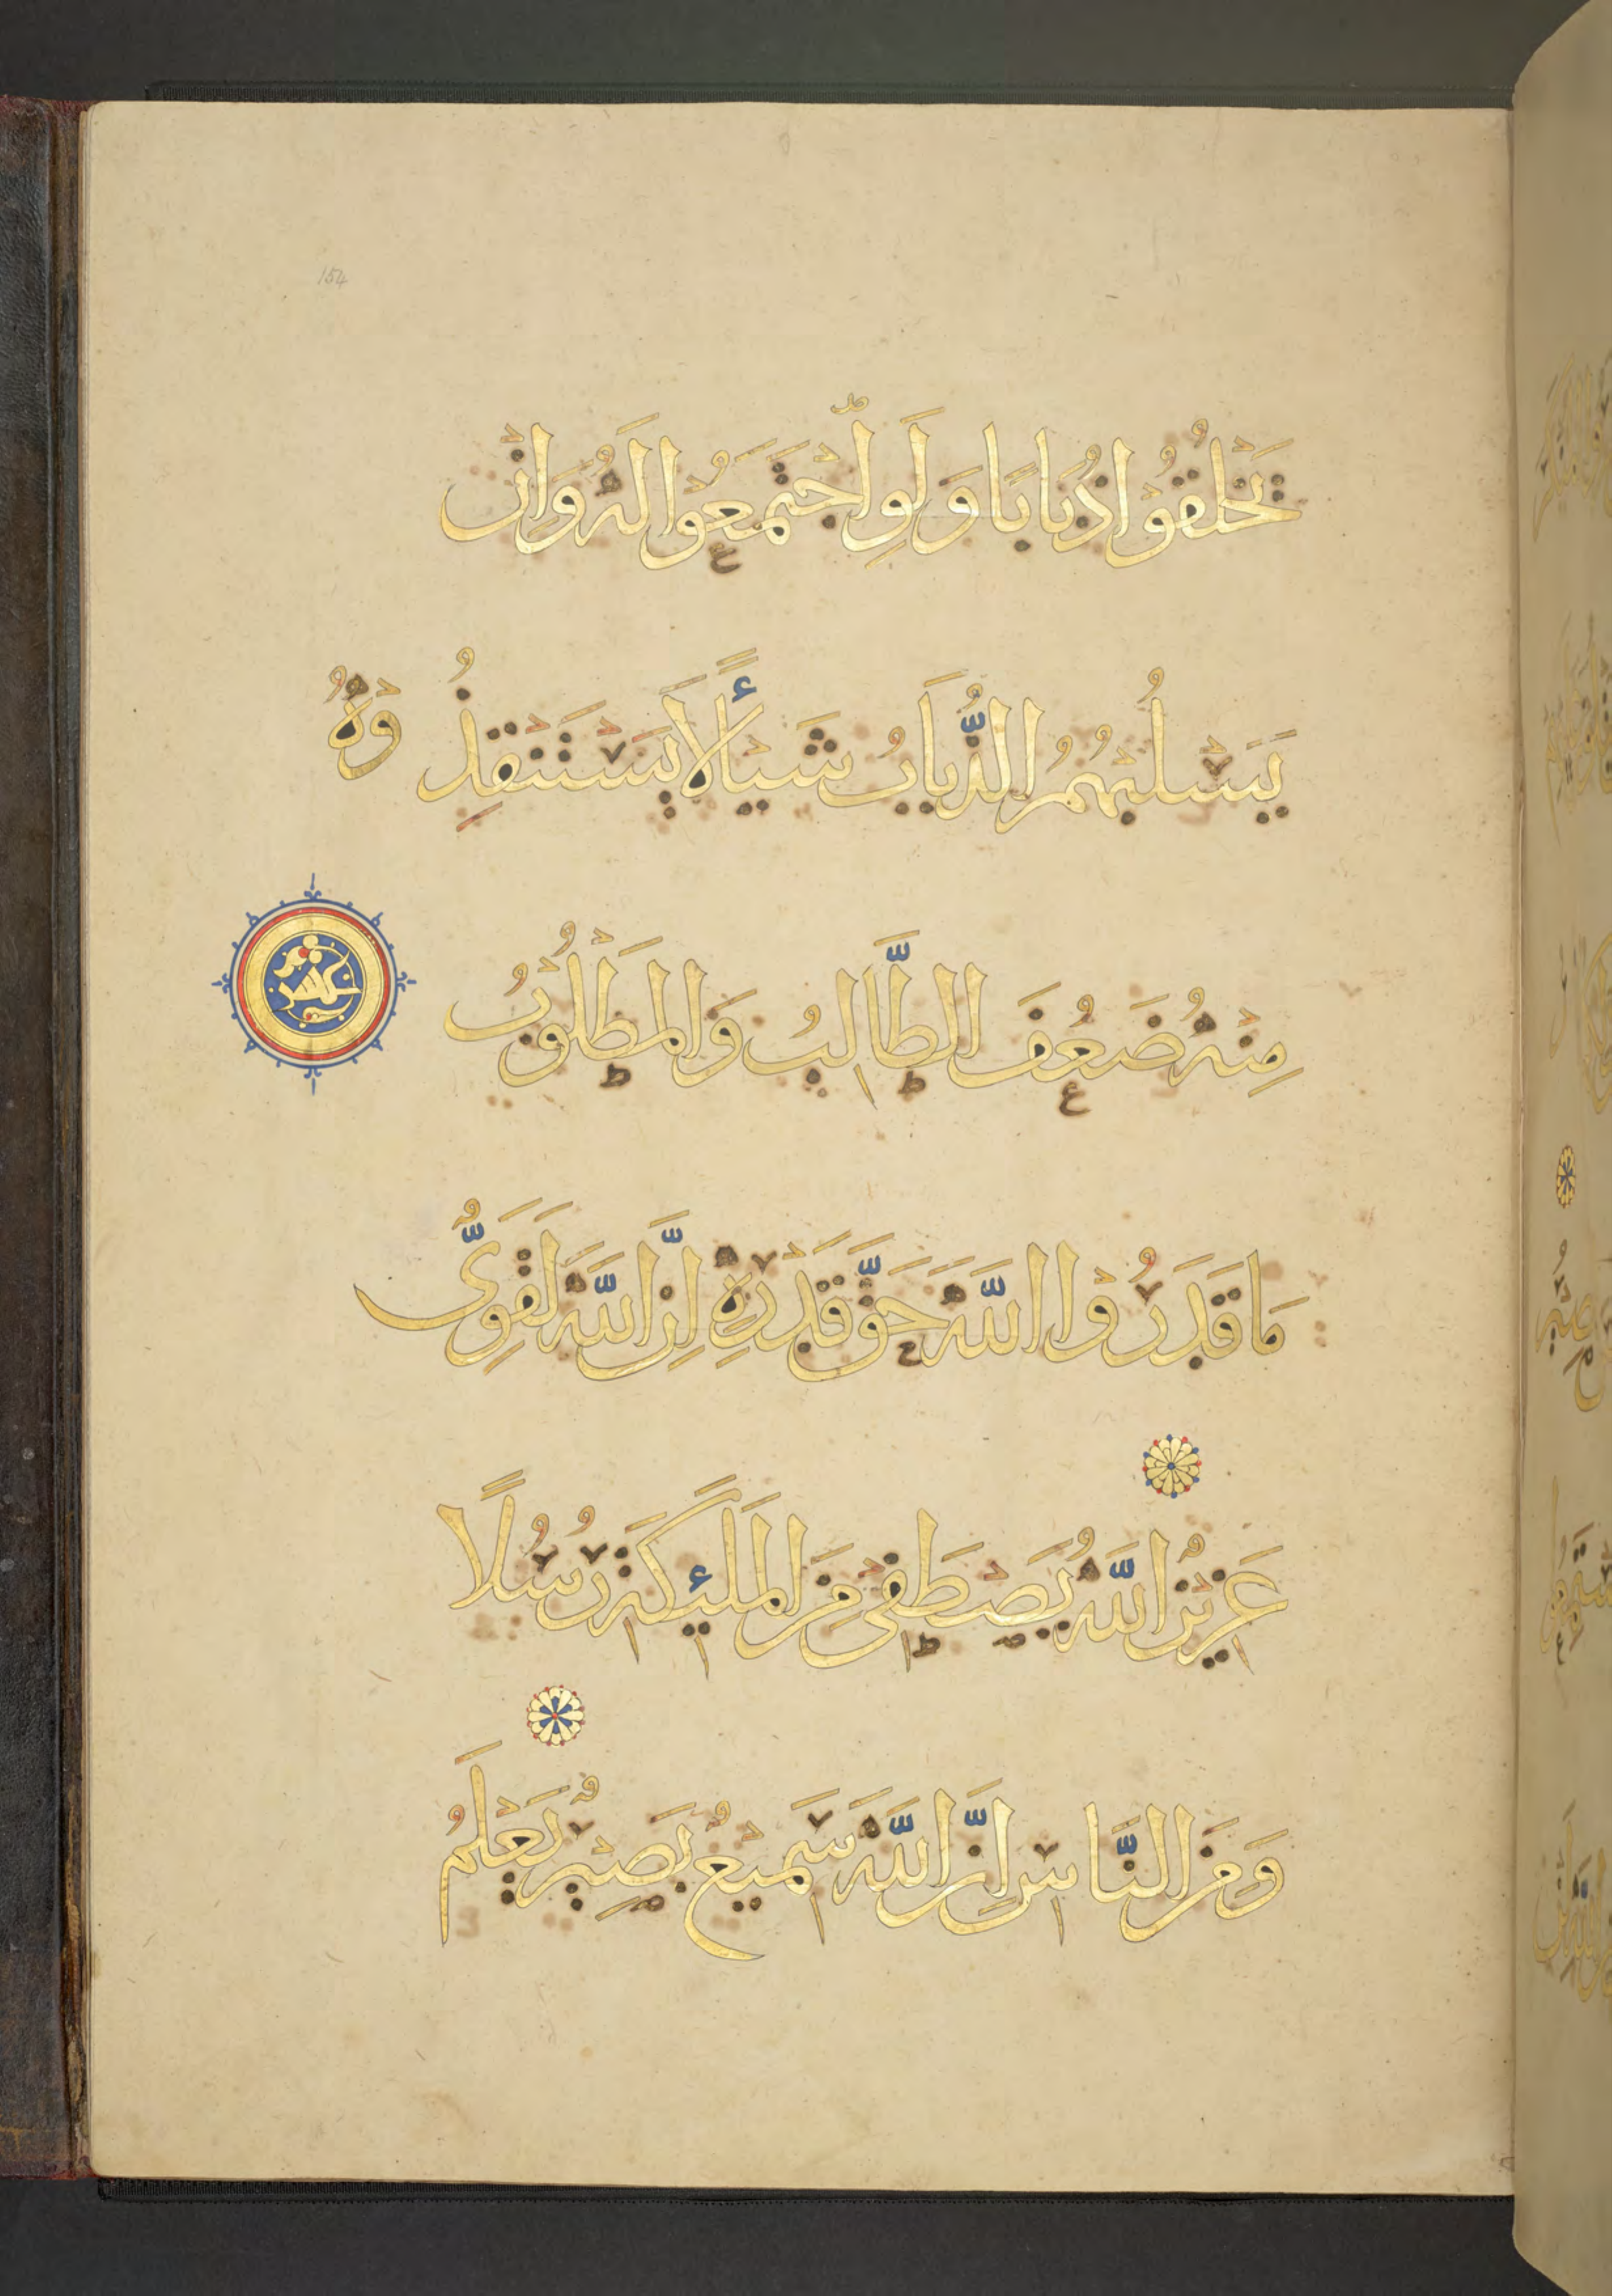 154
يَخْلُقُوْا ذُبَابًا وَلَوِ اجْتَمَعُوْا لَهُ وَاِنْ
يَسْلُبْهُمُ الذُّبَابُ شَيْـًٔا لَا يَسْتَنْقِذُوْهُ
مِنْهُ ضَعُفَ الطَّالِبُ وَالْمَطْلُوْبُ
مَا قَدَرُوْا اللَّهَ حَقَّ قَدْرِهٖ اِنَّ اللَّهَ لَقَوِىٌّ
عَزِيْزٌ اللَّهُ يَصْطَفِىْ مِنَ الْمَلٰٓئِكَةِ رُسُلًا
وَمِنَ النَّاسِ اِنَّ اللَّهَ سَمِيْعٌ بَصِيْرٌ يَعْلَمُ